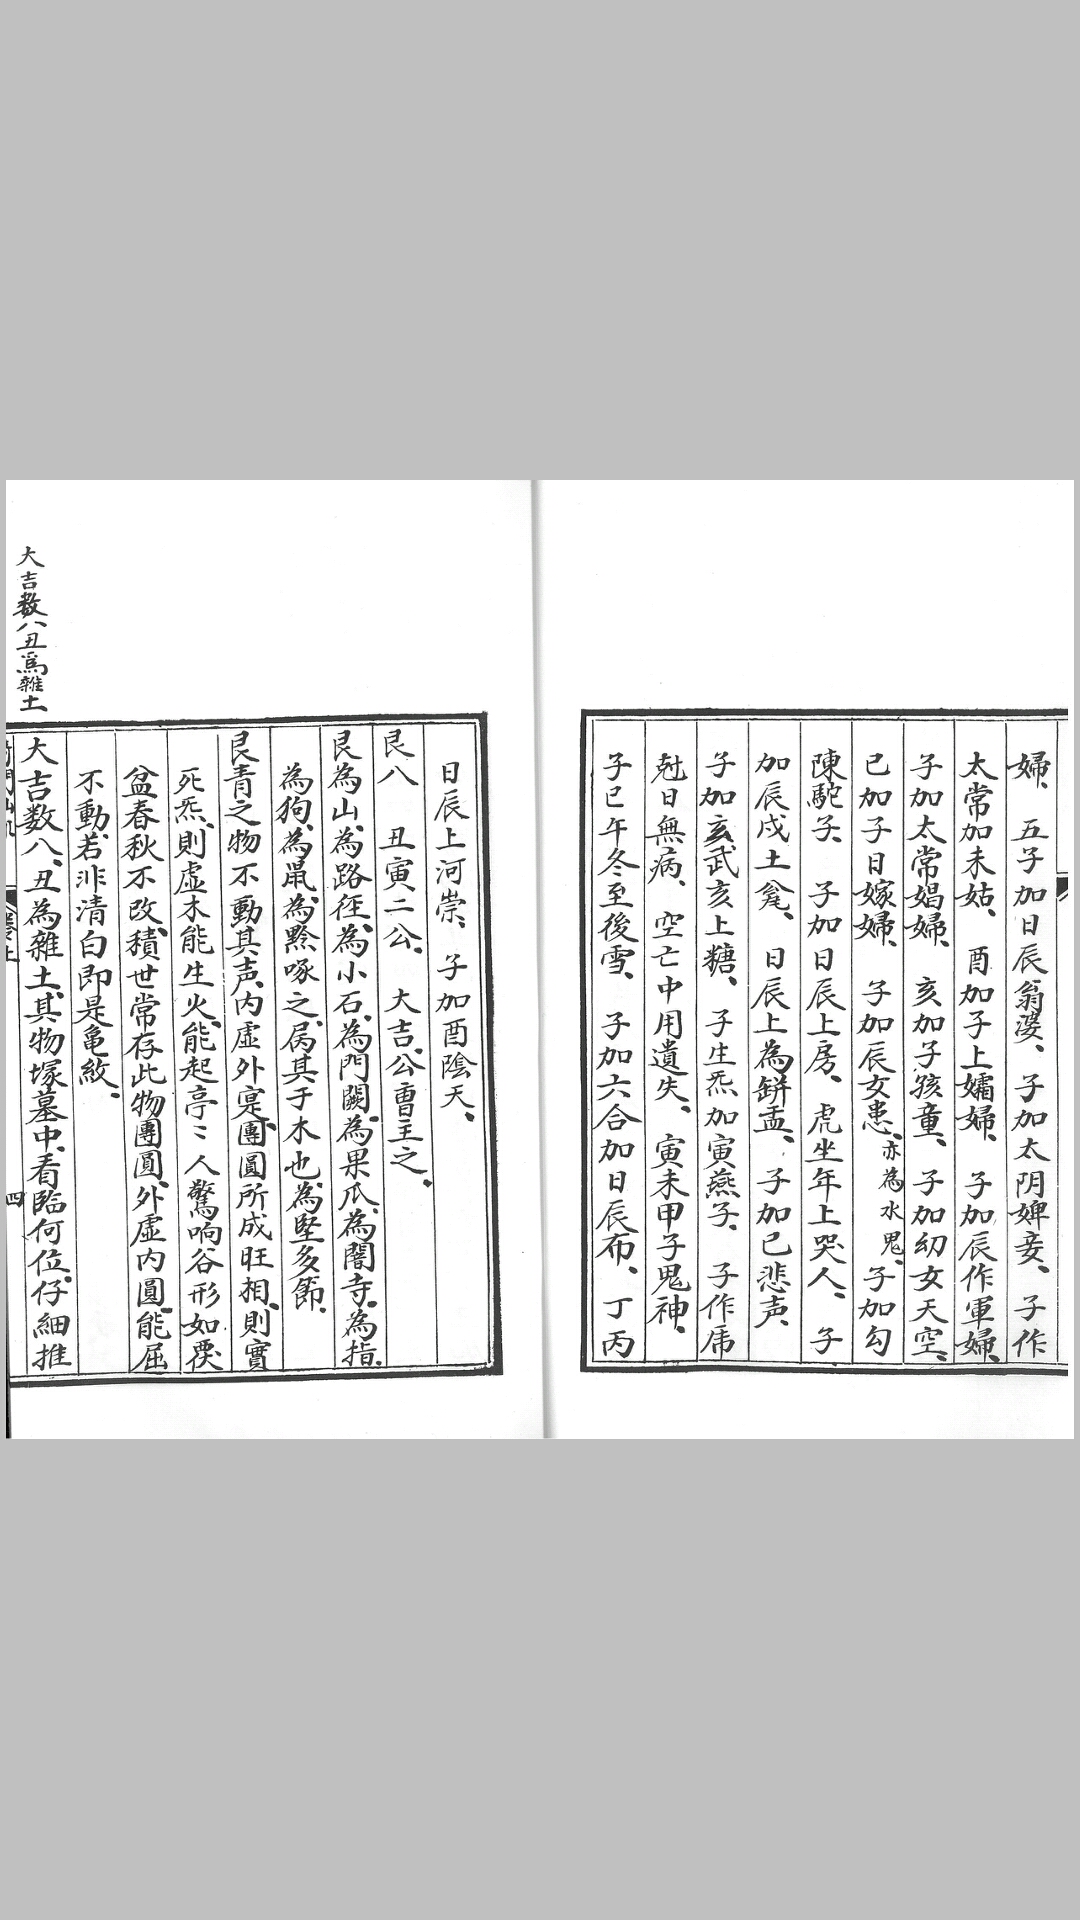 婦、　五子加日辰翁婆、　子加太阴婢妾、　子作
太常加未姑、　酉加子上孀婦、　子加辰作軍婦、
子加太常娼婦、　亥加子孩童、　子加幼女天空、
巳加子日嫁婦、　子加辰女患、亦為水鬼、子加勾
陳駝子、　子加日辰上房、　虎坐年上哭人、　子
加辰戌土瓮、　日辰上為缾盂、　子加巳悲声、
子加亥武亥上糖、　子生炁加寅燕子、　子作乕
尅日無病、　空亡中用遺失、　寅未甲子鬼神、
子巳午冬至後雪、　子加六合加日辰布、　丁丙
日辰上河祟、　子加酉陰天、
艮八　丑寅二公、　大吉、公曹主之、
艮為山、為路徑、為小石、為門闕、為果瓜、為闇寺、為指、
為狗、為鼠、為黔啄之属、其于木也、為堅多節、
艮青之物不動其声、内虚外寔、團圓所成旺相、則實
死炁、則虚木能生火、能起亭〻人驚响谷形如覆
盆春秋不改、積世常存此物團圓、外虚内圓、能屈
不動、若非清白即是亀紋、
大吉数八丑爲雜土
大吉数八、丑為雜土、其物塚墓中、看臨何位、仔細推
四